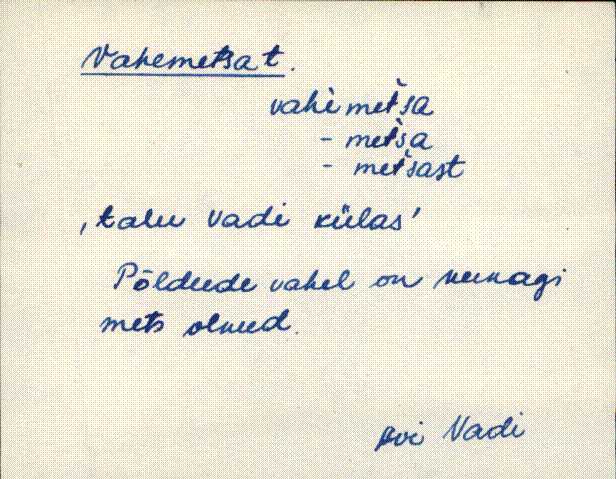 Vahemetsa t.
vahèmet̀sa
- met̀sa
- met̀sast
'talu Vadi külas'
Põldude vahel on kunagi
mets olnud.
Avi Vadi